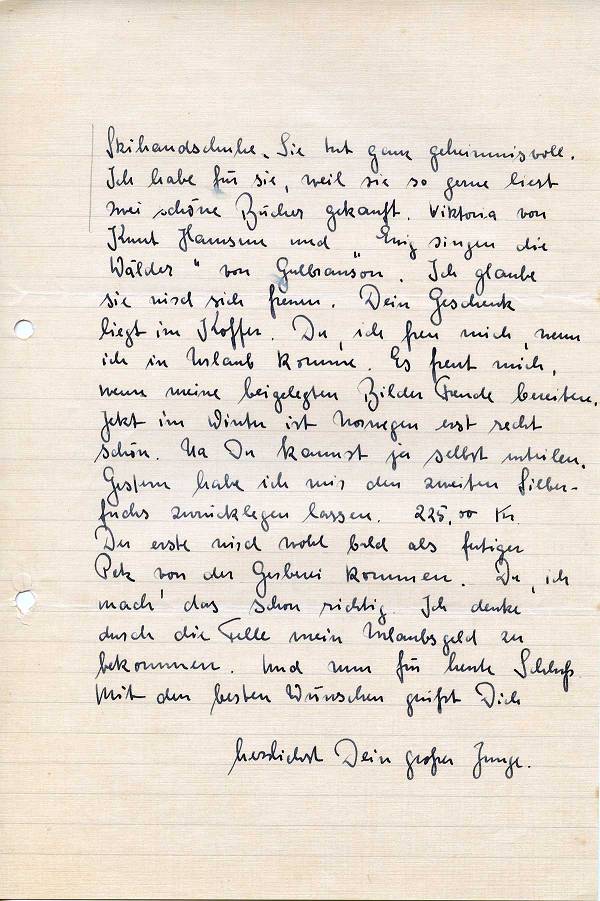 Skihandschuhe. Sie tut ganz geheimnisvoll.
Ich habe für sie, weil sie so gerne liest
zwei schöne Bücher gekauft. Viktoria von
Knut Hamsun und „Ewig singen die
Wälder" von Gulbranson. Ich glaube
sie wird sich freuen. Dein Geschenk
liegt im Koffer. Du, ich freu mich, wenn
ich in Urlaub komme. Es freut mich,
wenn meine beigelegten Bilder Freude bereiten.
Jetzt im Winter ist Norwegen erst recht
schön. Na Du kannst ja selbst urteilen.
Gestern habe ich mir den zweiten Silber-
fuchs zurücklegen lassen. 225,00 Kr.
Der erste wird wohl bald als fertiger
Pelz von der Gerberei kommen. Du, ich
mach' das schon richtig. Ich denke
durch die Felle mein Urlaubsgeld zu
bekommen. Und nun für heute Schluß.
Mit den besten Wünschen grüßt Dich
herzlichst Dein großer Junge.